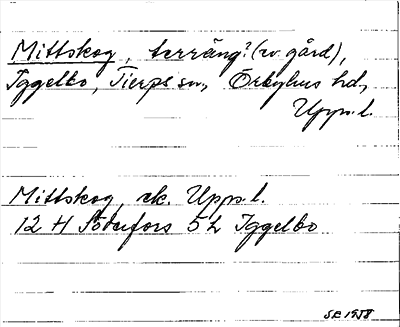 Mittskog, terräng? (ev. gård),
Iggelbo, Tierps sn, Örbyhus hd,
Upps. l.
Mittskog, ek. Upps. l.
12 H Söderfors 5 h Iggelbo
SE 1958